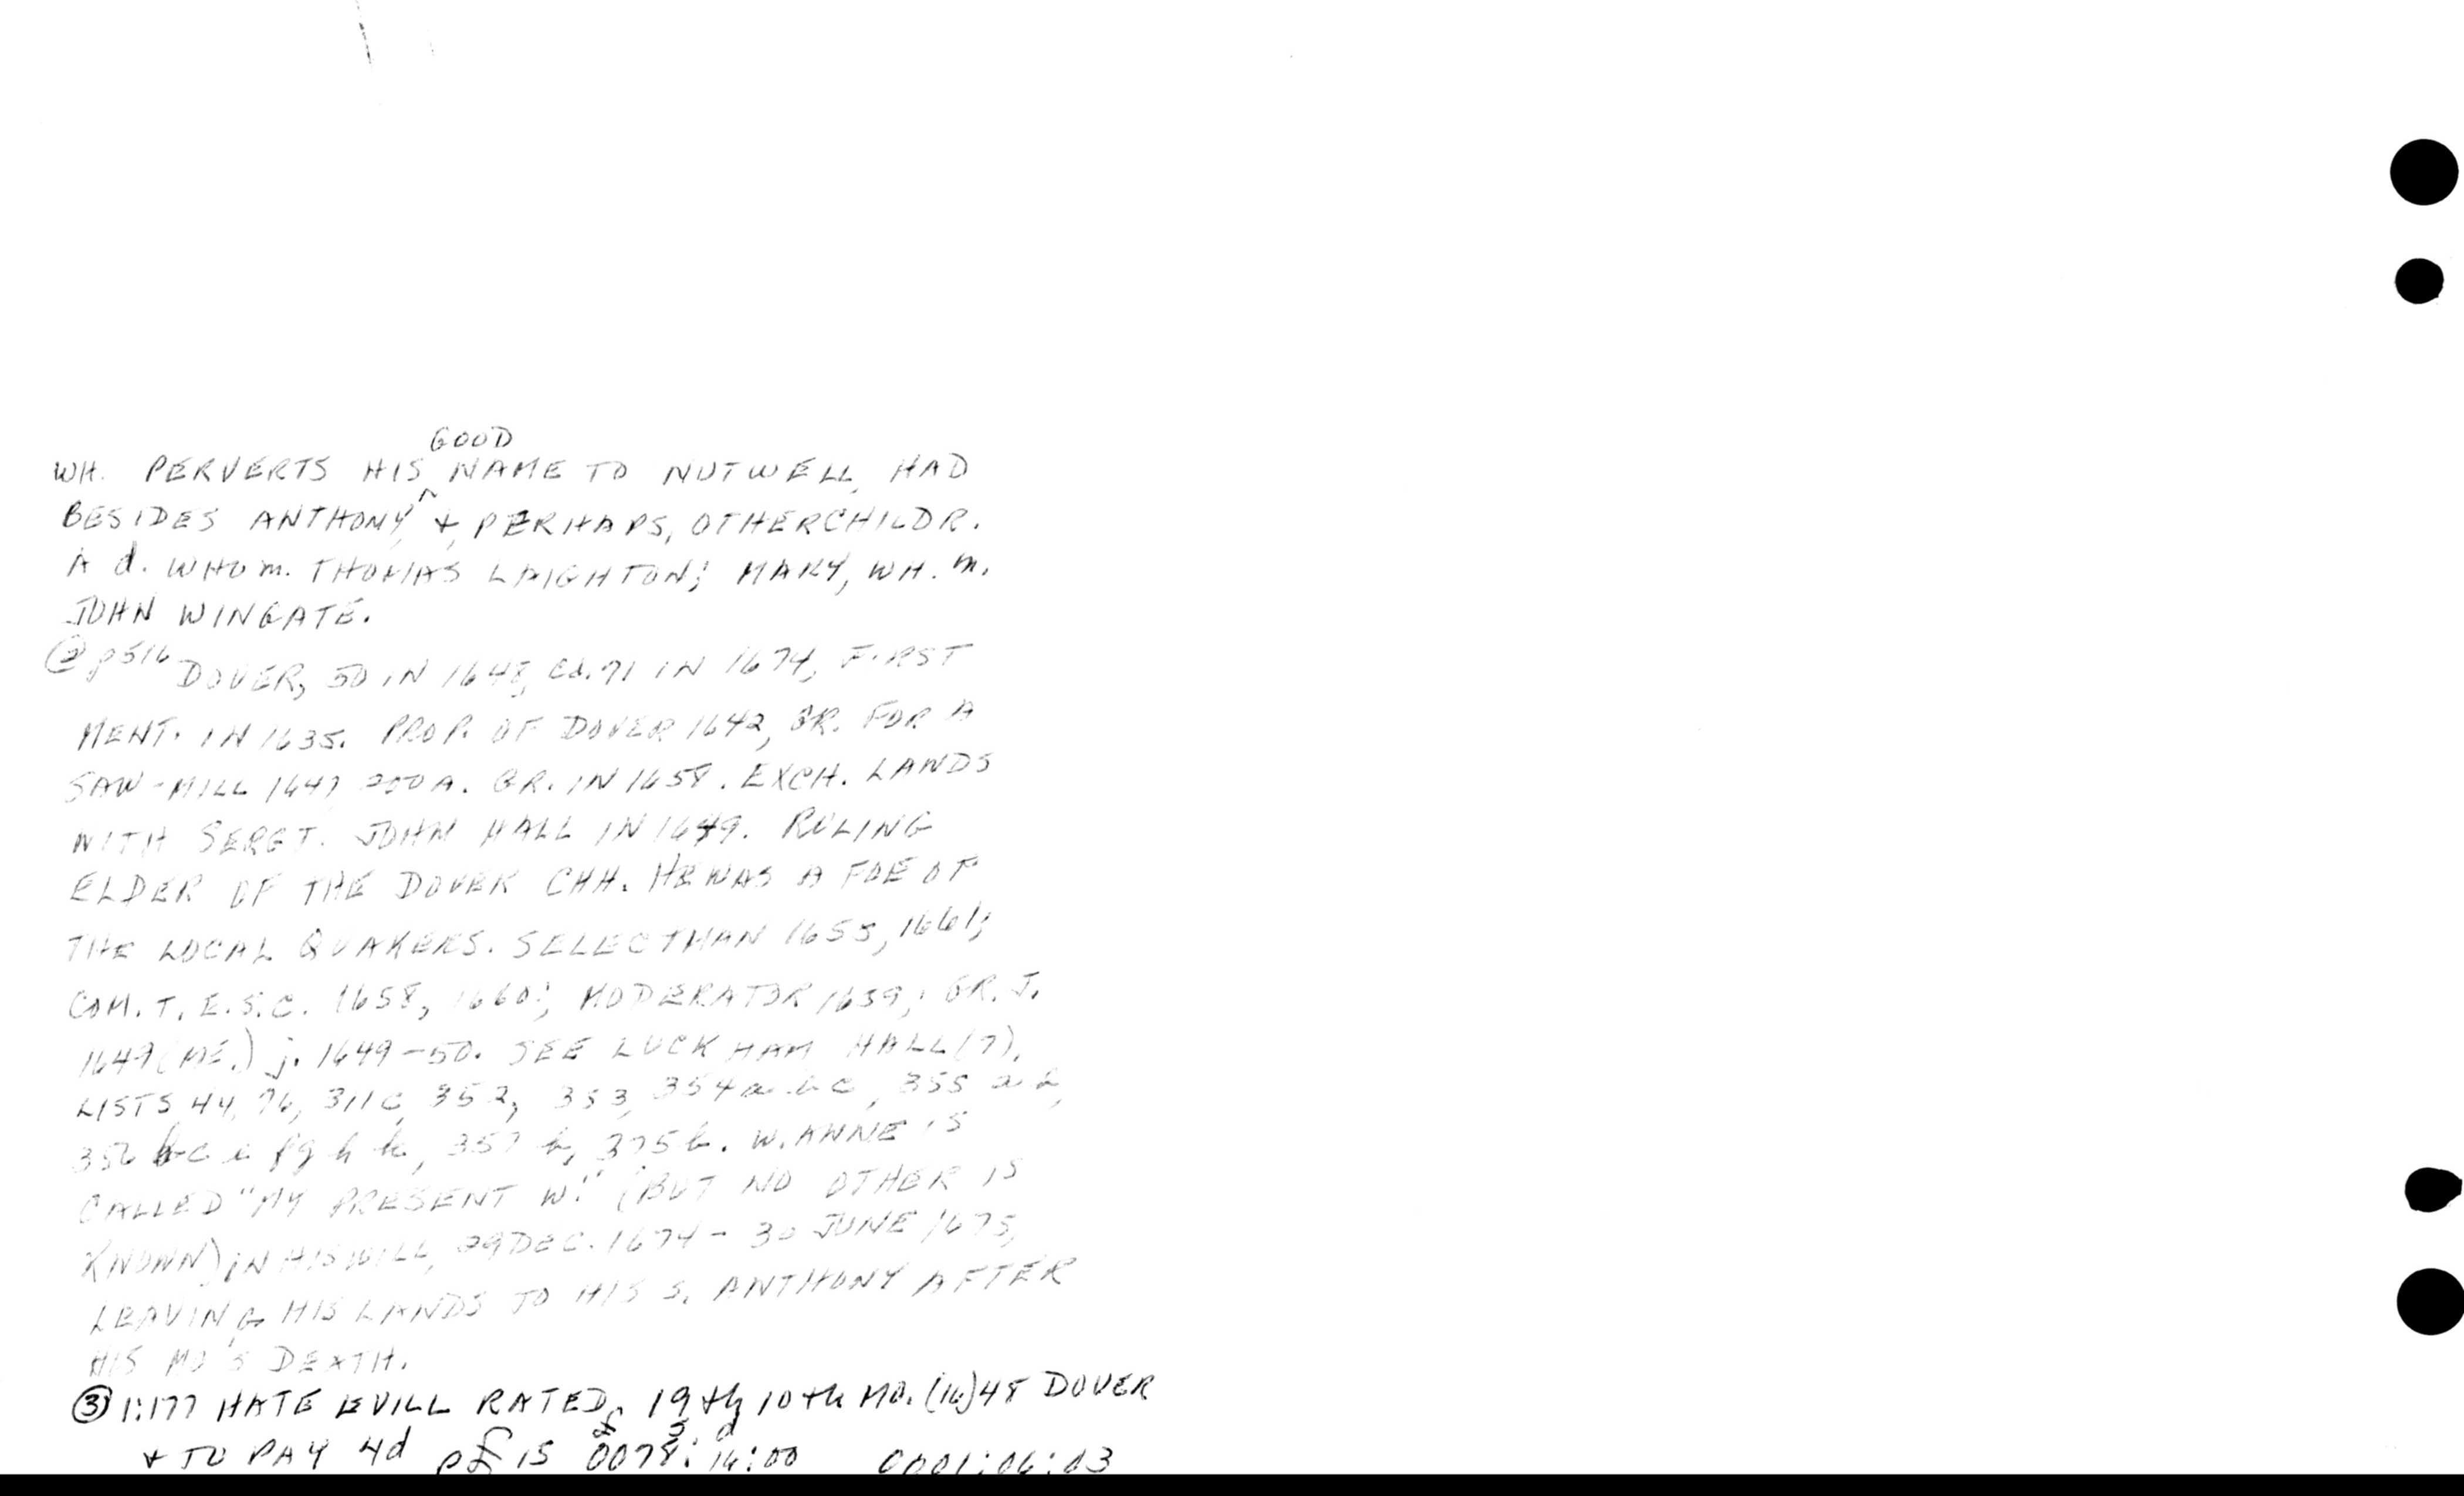 GOOD
WH. PERVERTS HIS ^ NAME TO NUTWELL, HAD
BESIDES ANTHONY, & PERHAPS, OTHER CHILDR.
A d. WHO m. THOMAS LAIGHTON; MARY, WH. m.
JOHN WINGATE.
② p516 DOVER, 50 IN 1648, ca. 71 IN 1674, FIRST
MENT. IN 1635. PROP. OF DOVER 1642, GR. FOR A
SAW-MILL 1647 200 A. GR. IN 1658. EXCH. LANDS
WITH SERGT. JOHN HALL IN 1649. RULING
ELDER OF THE DOVER CHH. HE WAS A FOE OF
THE LOCAL QUAKERS. SELECTMAN 1655, 1661;
COM. T. E. S. C. 1658, 1660; MODERATOR 1659; GR. J.
1649 (ME.) j. 1649-50. SEE LUCKHAM HALL (7).
LISTS 44, 76, 311c, 352, 353, 354 a b c, 355 a b,
356 b c e f g h k, 357 b, 375 b. W. ANNE IS
CALLED "MY PRESENT W." (BUT NO OTHER IS
KNOWN) IN HIS WILL, 29 DEC. 1674 - 30 JUNE 1675,
LEAVING HIS LANDS TO HIS S. ANTHONY AFTER
HIS MO'S DEATH.
③ 1:177 HATE EVILL RATED, 19th 10th MO. (16)48 DOVER
£ s d
& TO PAY 4d p£ IS 0078:16:00 0001:06:03